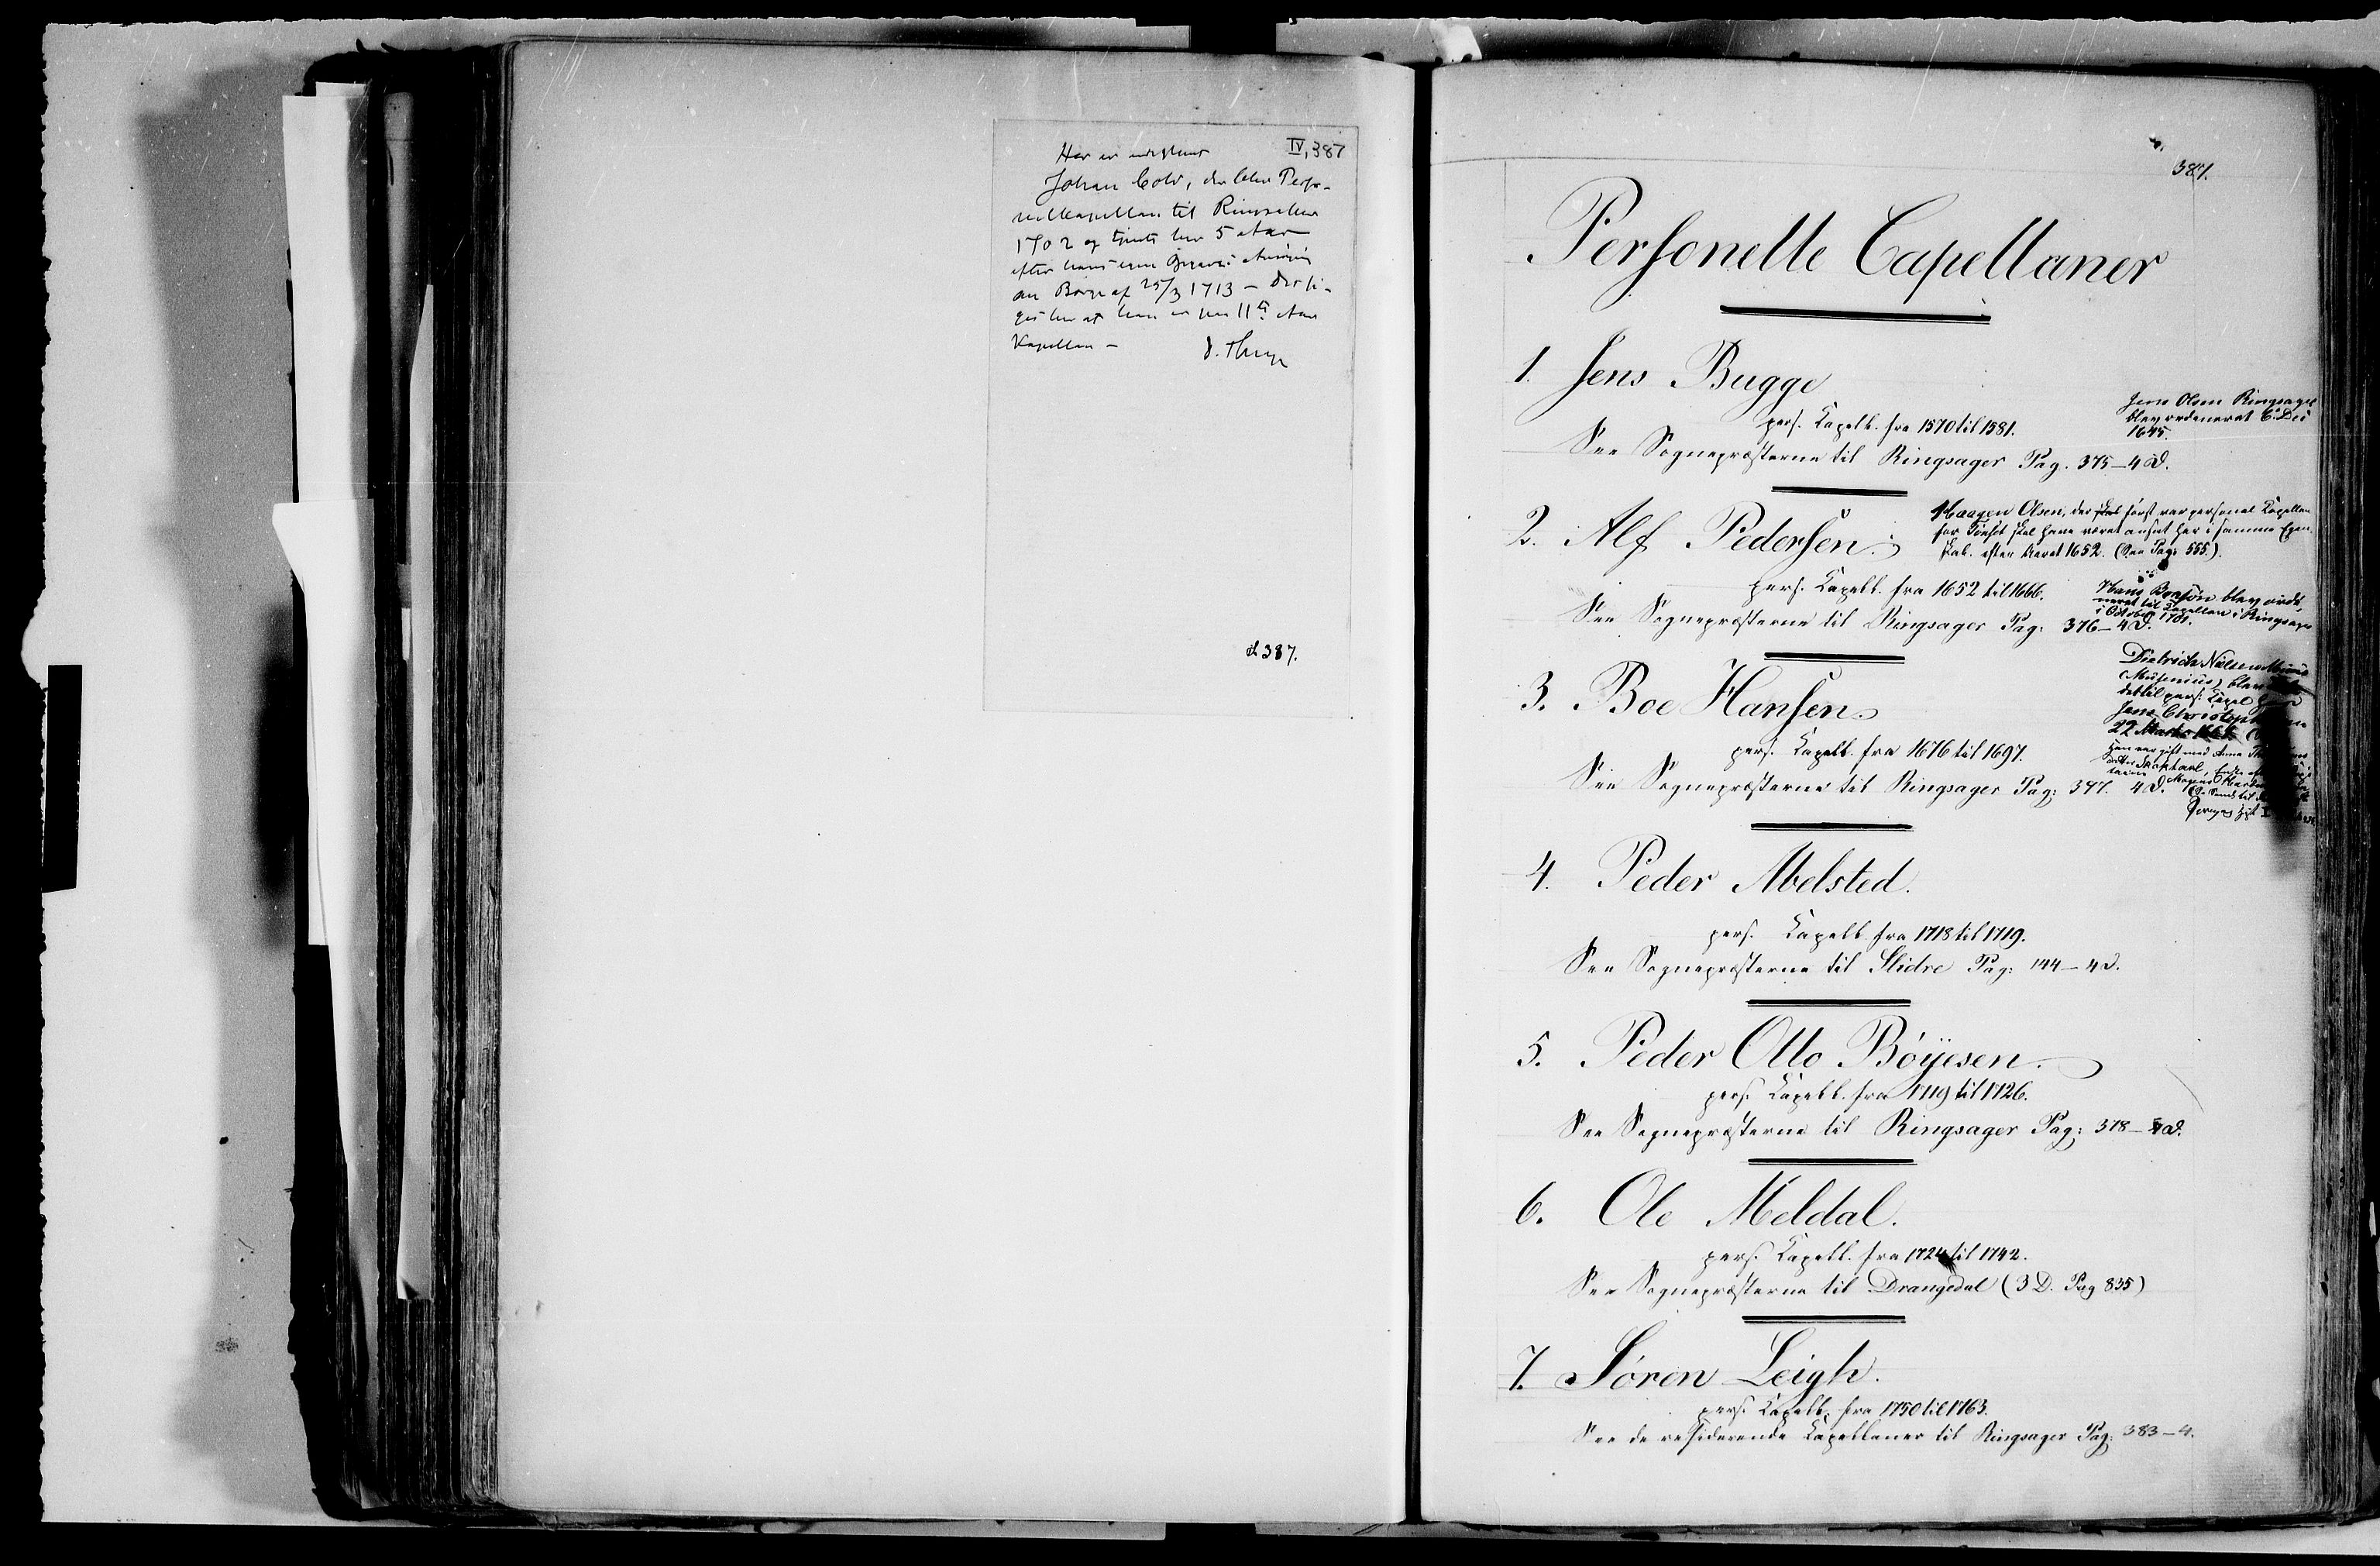 IV, 387
Her er
Johan Cold, der blev Perso-
nelkapellan til Ringsaker
1702 og tjente her 5 Aar
efter hans egen
af 25/3 1713 –
11te Aar
Kapellan –
d 387.
387.
Personelle Capellaner
1. Jens Bugge
pers. Capell. fra 1570 til 1581.
Jens Olsen Ringsager
blev ordineret 6. Dec
1645.
See Sognepræsterne til Ringsager Pag. 375–4 D.
2. Alf Pedersen.
Haagen Olsen, der først var personel Capellan
for Tønset skal have været ansat her i samme Egen-
skab. efter Aaret 1652. (See Pag: 555.).
pers. Capell. fra 1652 til 1666.
Hans Boesøn blev ordi-
neret til Capellan i Ringsager
i October 1701.
See Sognepræsterne til Ringsager Pag: 376–4 D.
3. Boe Hansen.
Diderich Nielsen
(Musenius) blev
det til pers. Capel
Jens Christoph
22 Marts
Han var gift med Anne
pers. Capell. fra 1676 til 1697.
See Sognepræsterne til Ringsager Pag: 377. 4 D.
4. Peder Abelsted.
pers. Capell fra 1718 til 1719.
See Sognepræsterne til Slidre Pag: 144–4 D.
5. Peder Otto Böyesen.
pers. Capell. fra 1719 til 1726.
See Sognepræsterne til Ringsager Pag: 378– D.
6. Ole Meldal.
pers. Capell. fra 1724 til 1742.
See Sognepræsterne til Drangedal (3 D. Pag 835)
7. Sören Leigh.
pers. Capell. fra 1750 til 1763.
See de residerende Capellaner til Ringsager Pag: 383–4.